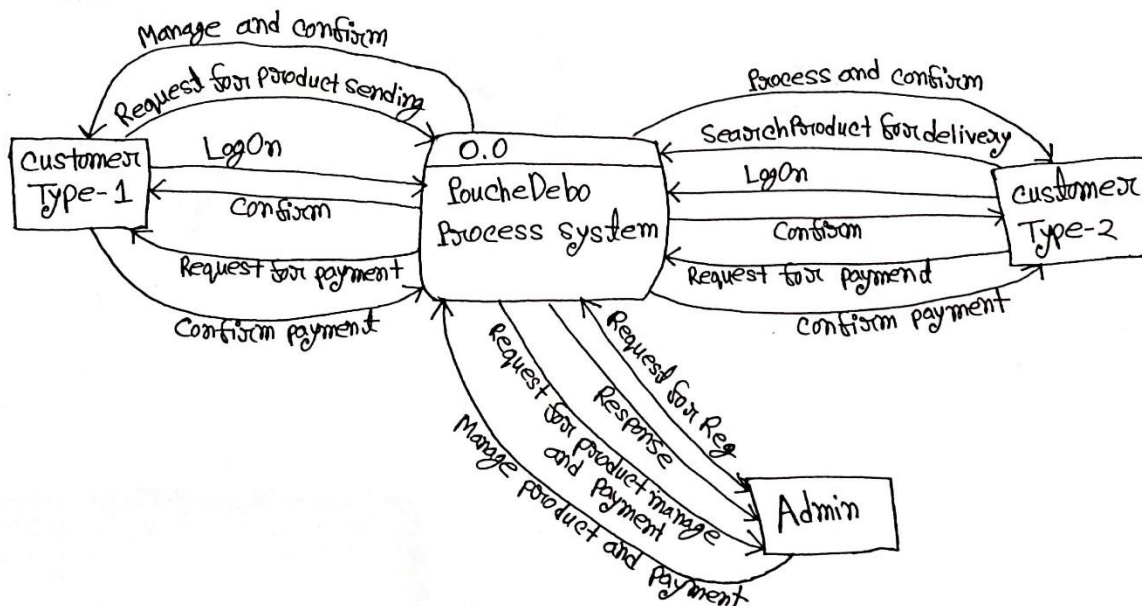 Manage and confirm
Request for product sending
LogOn
Confirm
Request for payment
Confirm payment
Customer
Type-1
0.0
PoucheDebo
Process system
Process and confirm
SearchProduct for delivery
LogOn
Confirm
Request for paymend
Confirm payment
customer
Type-2
Request for Reg
Response
Request for product manage
and payment
Manage product and payment
Admin